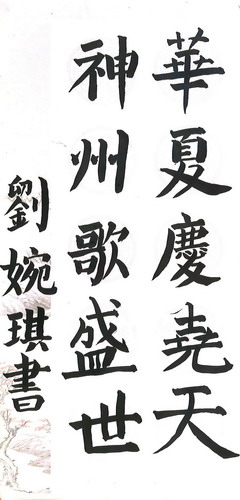 華夏慶堯天
神州歌盛世
劉婉琪書